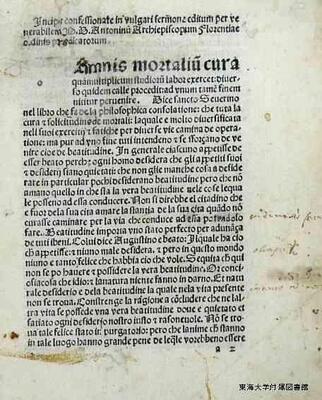 Incipit confessionale in vulgari sermone editum per ve
nerabilem P. D. Antoninū Archiepiscopum Florentiae
ordinis predicatorum.
Omnis mortaliū cura
quā multiplicum studiorū labor exercet: diuer
so quidem calle procedit ad vnum tamē finem
nititur peruenire. Dice sancto Seuerino
nel libro che fa de la philosophica consolatione: che tuta la
cura & solicitudine de mortali: laquale e molto diuersificata
nelli suoi exercitii & fatiche per diuerse vie camina de opera
tione: ma pur ad vno fine tuti intendeno & se sforzano de ve
nire cioe de beatitudine. In generale ciascuno appetisse de
esser beato perche ogni homo desidera che gli appetiti suoi
& desiderii siano quietati: che non glie manche cosa a deside
rare in particular pochi desiderano beatitudine pero che nō
amano quello in che sta la vera beatitudine ne le cose lequa
le posseno ad essa conducere. Non si direbbe el citadino che
e fuor de la sua cita amare la stantia de la sua cita quādo nō
curasse caminare per la via che conduce ad essa potendolo
fare. Beatitudine importa vno stato perfecto per adunāça
de tuti i beni. Colui dice Augustino e beato: Il quale ha cio
ch appetisse: & niuno male desidera. & pero in questo mondo
niuno e tanto felice che habbia cio che vole. Sequita ch qui
non se po hauere & possidere la vera beatitudine. Et concio
siacosa che idio & la natura niente fanno in darno. Et natu
rale desiderio e de la beatitudine la quale ne la vita presente
non se troua. Constrenge la ragione a cōcludere che ne lal
tra vita se possede vna vera beatitudine doue e quietato et
satiato ogni desiderio nostro iusto & rasoneuole. Nō se tro
ua tale felice stato in purgatorio: pero che lanime ch stanno
in tal luogo hanno grande pene de leqle vorrebeno essere
a 2
東海大学付属図書館